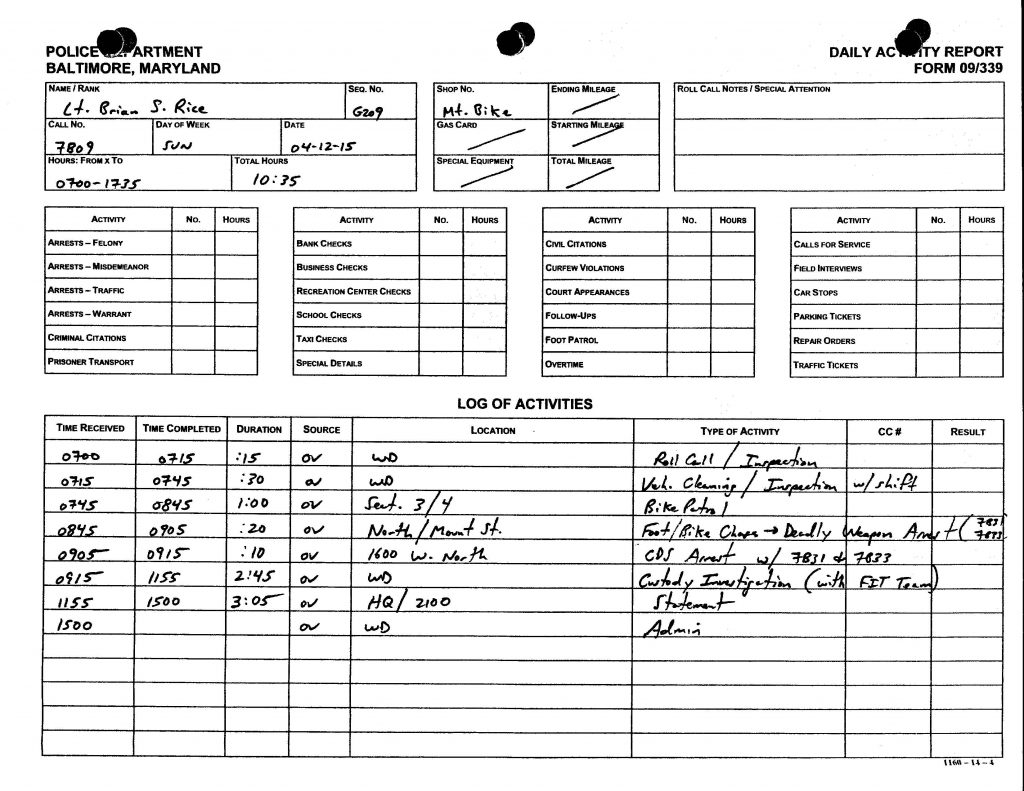 POLICE DEPARTMENT
BALTIMORE, MARYLAND
DAILY ACTIVITY REPORT
FORM 09/339
NAME / RANK SEQ. NO.
Lt. Brian S. Rice G209
CALL NO. DAY OF WEEK DATE
7809 SUN 04-12-15
HOURS: FROM X TO TOTAL HOURS
0700-1735 10:35
SHOP NO. ENDING MILEAGE
Mt. Bike /
GAS CARD STARTING MILEAGE
/ /
SPECIAL EQUIPMENT TOTAL MILEAGE
/ /
ROLL CALL NOTES / SPECIAL ATTENTION
ACTIVITY NO. HOURS
ARRESTS – FELONY
ARRESTS – MISDEMEANOR
ARRESTS – TRAFFIC
ARRESTS – WARRANT
CRIMINAL CITATIONS
PRISONER TRANSPORT
ACTIVITY NO. HOURS
BANK CHECKS
BUSINESS CHECKS
RECREATION CENTER CHECKS
SCHOOL CHECKS
TAXI CHECKS
SPECIAL DETAILS
ACTIVITY NO. HOURS
CIVIL CITATIONS
CURFEW VIOLATIONS
COURT APPEARANCES
FOLLOW-UPS
FOOT PATROL
OVERTIME
ACTIVITY NO. HOURS
CALLS FOR SERVICE
FIELD INTERVIEWS
CAR STOPS
PARKING TICKETS
REPAIR ORDERS
TRAFFIC TICKETS
LOG OF ACTIVITIES
TIME RECEIVED TIME COMPLETED DURATION SOURCE LOCATION TYPE OF ACTIVITY CC # RESULT
0700 0715 :15 OV WD Roll Call / Inspection
0715 0745 :30 OV WD Veh. Cleaning / Inspection w/ shift
0745 0845 1:00 OV Sect. 3/4 Bike Patrol
0845 0905 :20 OV North / Mount St. Foot/Bike Chase → Deadly Weapon Arrest (7831 7833
0905 0915 :10 OV 1600 W. North CDS Arrest w/ 7831 & 7833
0915 1155 2:45 OV WD Custody Investigation (with FIT Team)
1155 1500 3:05 OV HQ / 2100 Statement
1500 OV WD Admin
1160 – 14 – 4